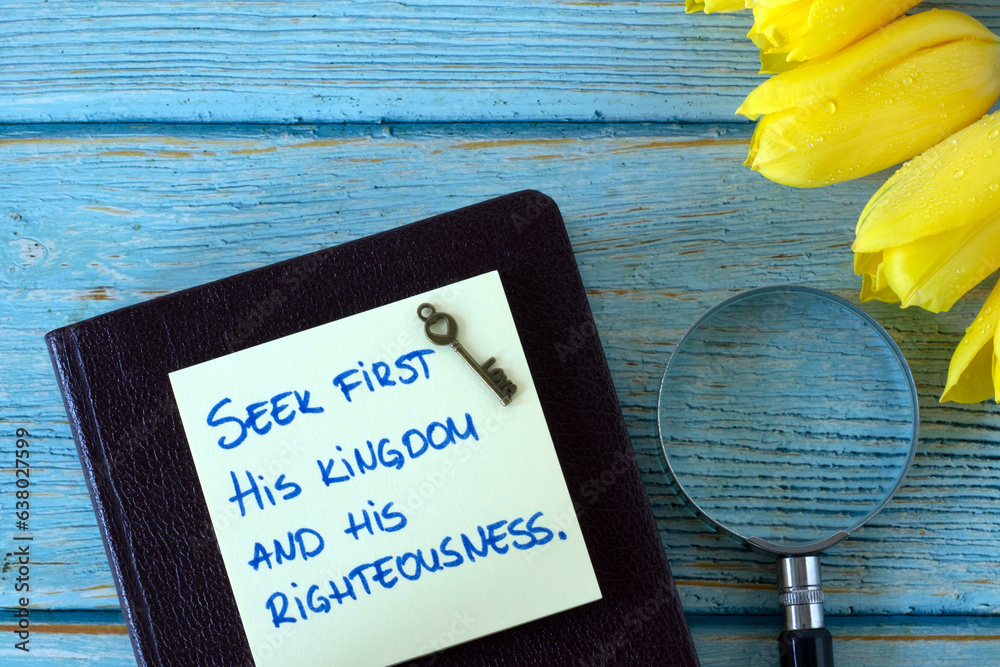 SEEK FIRST
HIS KINGDOM
AND HIS
RIGHTEOUSNESS.
Love
Adobe Stock | #638027599